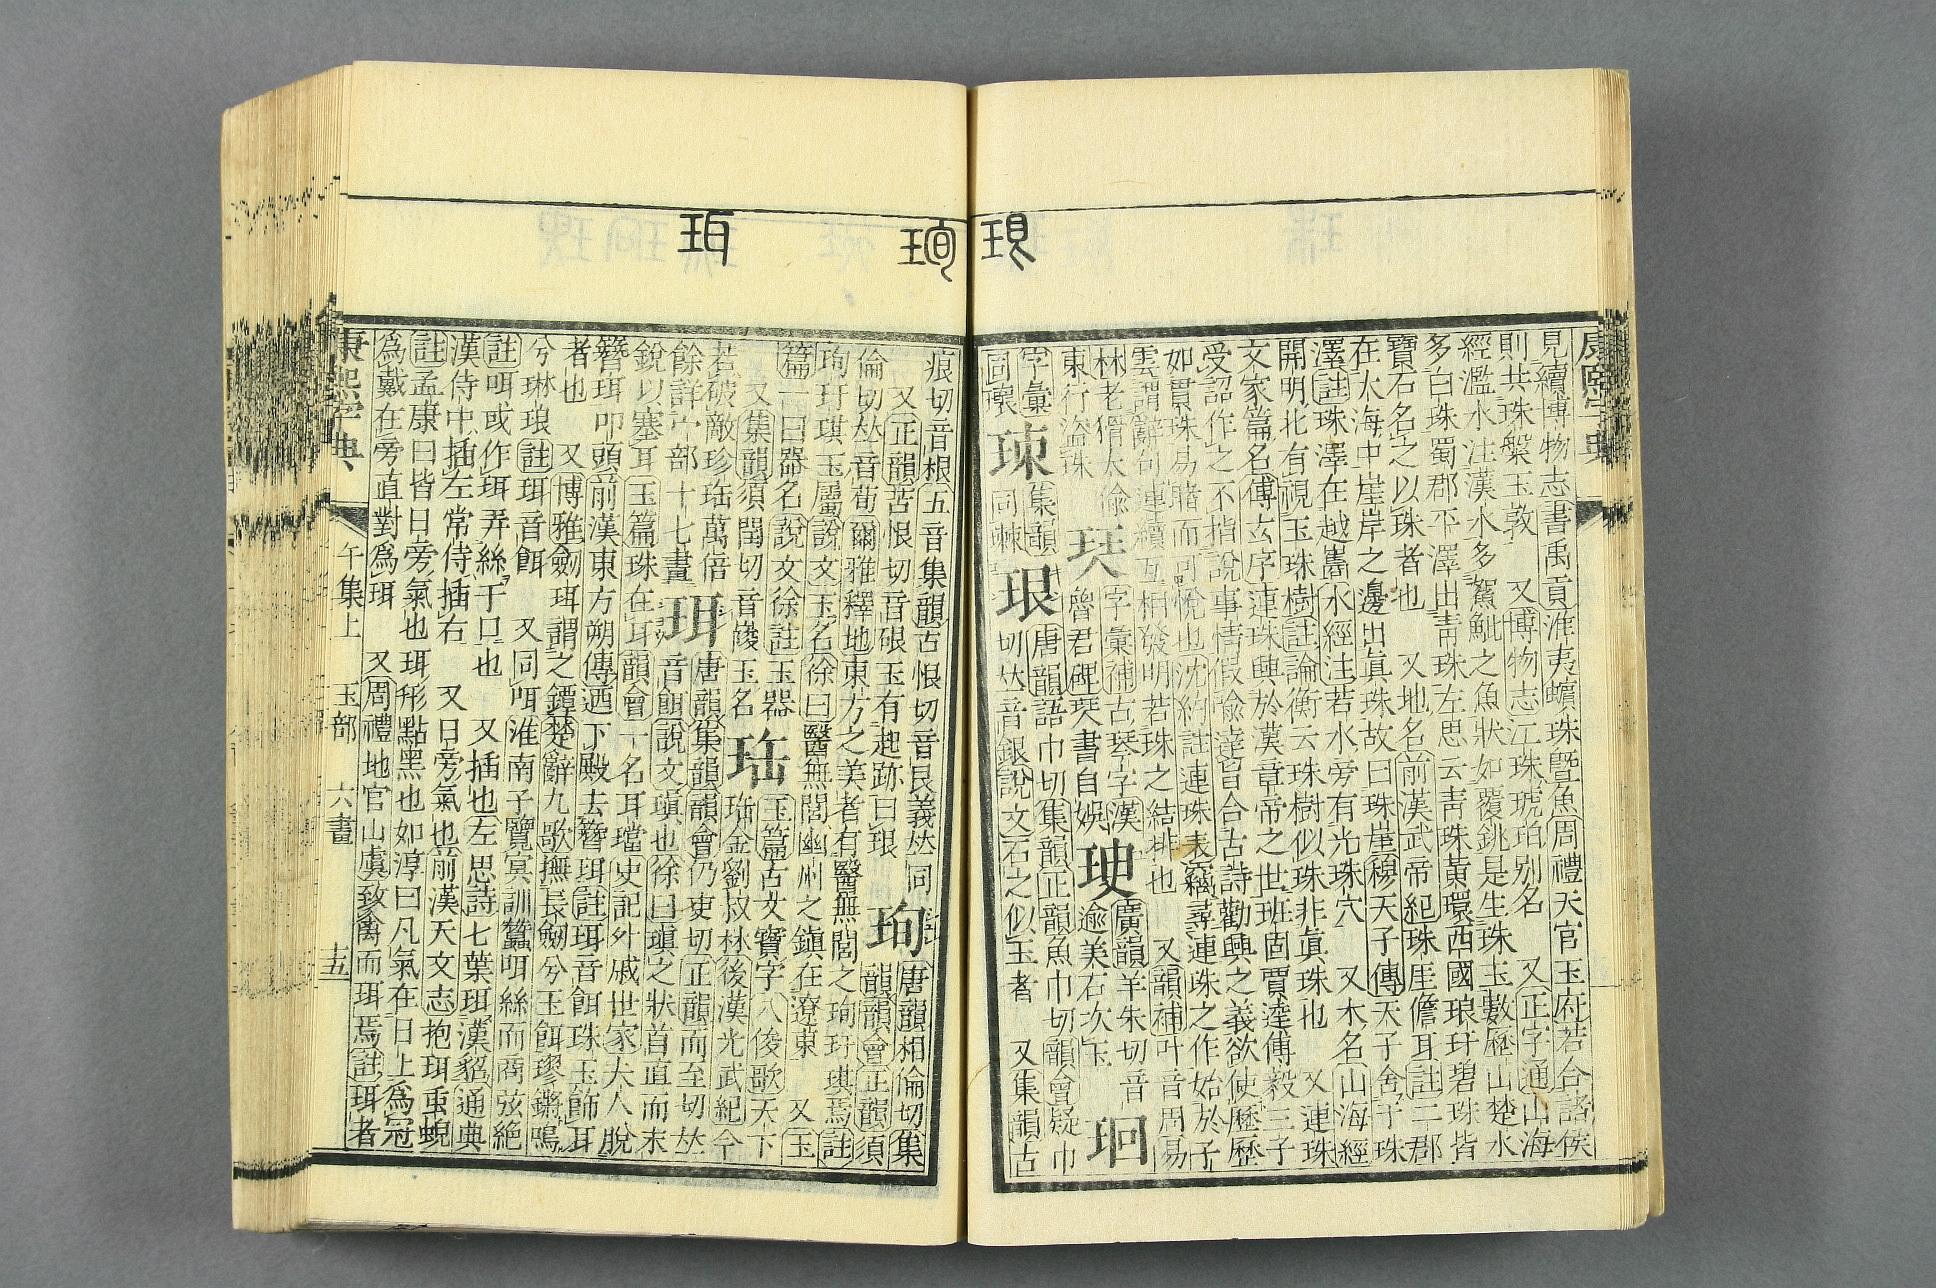 康熙字典
見續博物志書禹貢淮夷蠙珠曁魚周禮天官玉府若合諸侯
則共珠槃玉敦　又博物志江珠琥珀别名　又正字通山海
經濫水注漢水多鴽魮之魚狀如覆銚是生珠玉數歷山楚水
多白珠蜀郡平澤出靑珠左思云靑珠黃環西國琅玕碧珠皆
寶石名之以珠者也　又地名前漢武帝紀珠厓儋耳註二郡
在大海中崖岸之邊出眞珠故曰珠崖穆天子傳天子舍于珠
澤註珠澤在越嶲水經注若水旁有光珠穴　又木名山海經
開明北有視玉珠樹註論衡云珠樹似珠非眞珠也　又連珠
文家篇名傅玄序連珠興於漢章帝之世班固賈逵傅毅三子
受詔作之不指說事情假喻達旨合古詩勸興之義欲使歷歷
如貫珠易睹而可悅也沈約註連珠表竊尋連珠之作始於子
雲謂辭句連續互相發明若珠之結排也　又韻補叶音周易
林老猾大偸
東行盜珠
珡字彙補古琴字漢
魯君碑珡書自娛
玼廣韻羊朱切音
逾美石次玉
珂
字彙
同瓌
㻋集韻
同㻋
珢唐韻語巾切集韻正韻魚巾切韻會疑巾
切𠀤音銀說文石之似玉者　又集韻古
痕切音根五音集韻古恨切音艮義𠀤同
又正韻苦恨切音硍玉有起跡曰珢
珣唐韻相倫切集
韻韻會正韻須
倫切𠀤音荀爾雅釋地東方之美者有醫無閭之珣玗琪焉註
珣玗琪玉屬說文玉名徐曰醫無閭幽州之鎭在遼東　又玉
篇一曰器名說文徐註玉器
又集韻須閏切音陖玉名
珤玉篇古文寶字八俊歌天下
珤金劉叔林後漢光武紀今
若破敵珍珤萬倍
餘詳宀部十七畫
珥唐韻集韻韻會仍吏切正韻而至切𠀤
音餌說文瑱也徐曰瑱之狀首直而末
銳以塞耳玉篇珠在耳韻會一名耳璫史記外戚世家夫人脫
簪珥叩頭前漢東方朔傳迺下殿去簪珥註珥音餌珠玉飾耳
者也　又博雅劒珥謂之鐔楚辭九歌撫長劒兮玉餌璆鏘鳴
兮琳琅註珥音餌　又同咡淮南子覽冥訓蠶咡絲而商弦絕
註咡或作珥弄絲于口也　又插也左思詩七葉珥漢貂通典
漢侍中插左常侍插右　又日旁氣也前漢天文志抱珥䖝蜺
註孟康曰皆日旁氣也珥形點黑也如淳曰凡氣在日上爲冠
爲戴在旁直對爲珥　又周禮地官山虞致禽而珥焉註珥者
康熙字典　午集上　玉部　六畫　十五